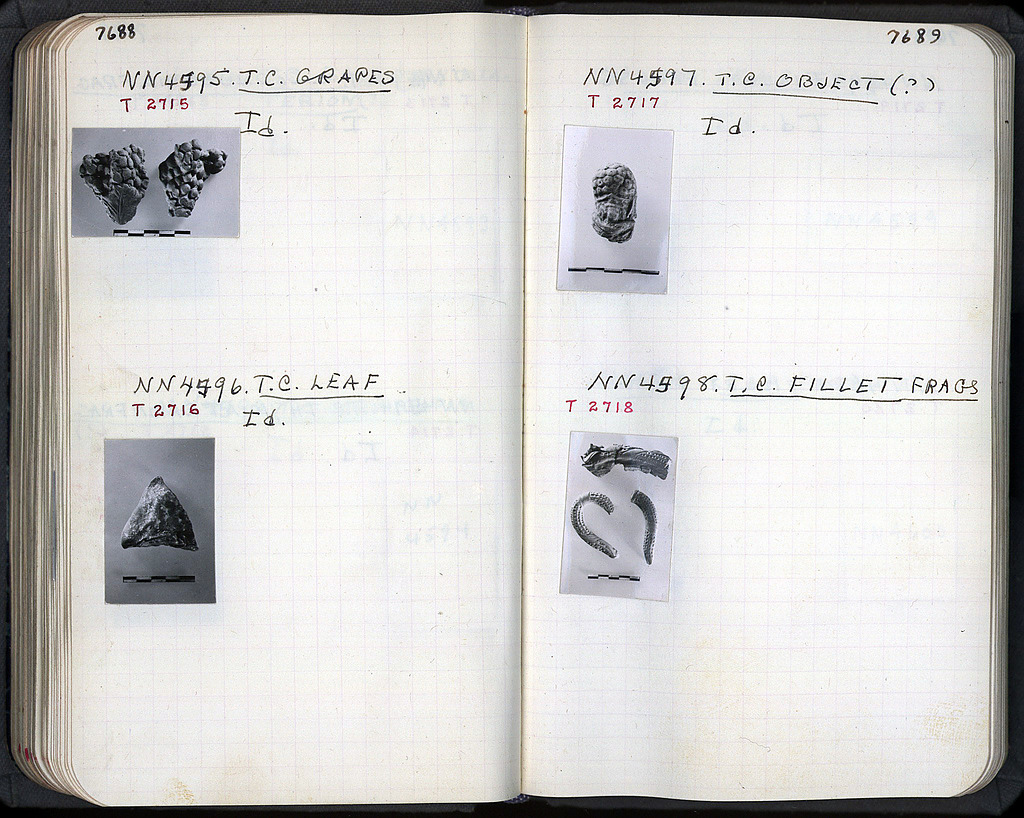 7688
NN4595. T.C. GRAPES
T 2715
Id.
NN4596. T.C. LEAF
T 2716
Id.
7689
NN4597. T.C. OBJECT (?)
T 2717
Id.
NN4598. T.C. FILLET FRAGS
T 2718